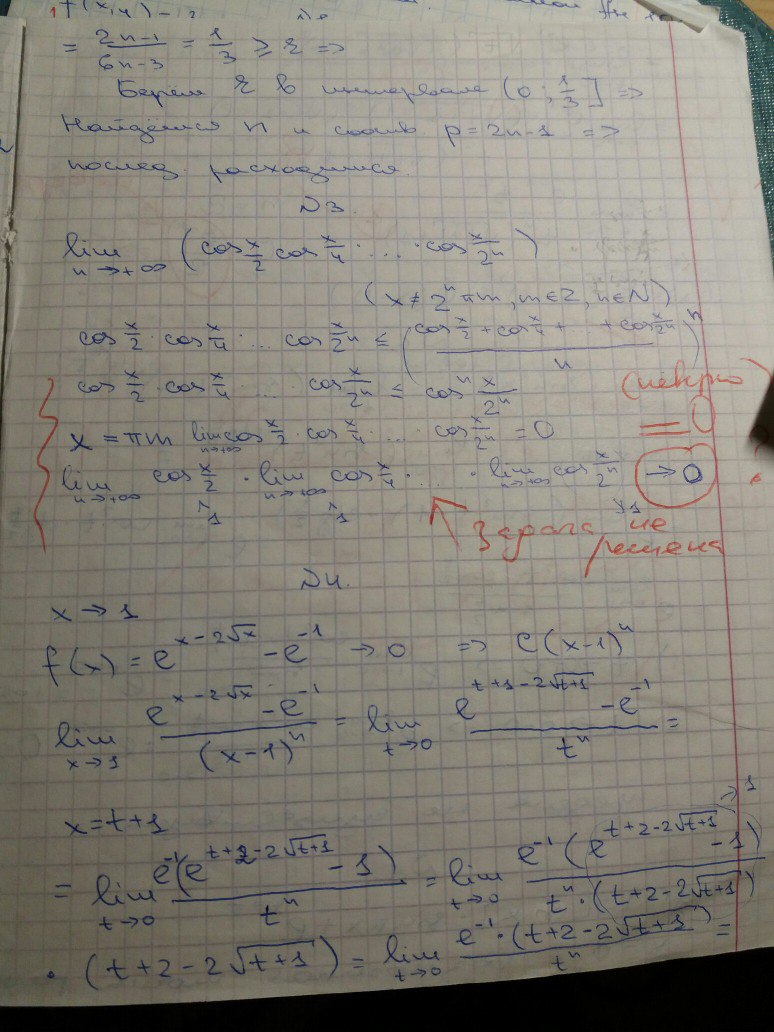 f(x,y) –
= \frac{2n-1}{6n-3} = \frac{1}{3} ≥ ε =>
Берём ε в интервале (0; \frac{1}{3}] =>
Найдётся n и соотв p = 2n-1 =>
послед. расходится.
N3.
\lim_{n→+∞} (cos\frac{x}{2} cos\frac{x}{4} · ... · cos\frac{x}{2^n})
(x ≠ 2^n πm, m∈Z, n∈N)
cos\frac{x}{2} · cos\frac{x}{4} · ... cos\frac{x}{2^n} ≤ (\frac{cos\frac{x}{2} + cos\frac{x}{4} + ... + cos\frac{x}{2^n}}{n})^n
cos\frac{x}{2} · cos\frac{x}{4} · ... cos\frac{x}{2^n} ≤ cos^n \frac{x}{2^n} (неверно)
x = πm \lim_{n→+∞} cos\frac{x}{2} · cos\frac{x}{4} · ... cos\frac{x}{2^n} = 0 = 0
\lim_{n→+∞} cos\frac{x}{2} · \lim_{n→+∞} cos\frac{x}{4} · ... · \lim_{n→+∞} cos\frac{x}{2^n} → 0
1 1 1
Задача не
решена
N4.
x → 1
f(x) = e^{x-2\sqrt{x}} - e^{-1} → 0 => C(x-1)^n
\lim_{x→1} \frac{e^{x-2\sqrt{x}} - e^{-1}}{(x-1)^n} = \lim_{t→0} \frac{e^{t+1-2\sqrt{t+1}} - e^{-1}}{t^n} =
x = t+1
= \lim_{t→0} \frac{e^{-1}(e^{t+2-2\sqrt{t+1}} - 1)}{t^n} = \lim_{t→0} \frac{e^{-1}(e^{t+2-2\sqrt{t+1}} - 1)}{t^n · (t+2-2\sqrt{t+1})} → 1
· (t+2-2\sqrt{t+1}) = \lim_{t→0} \frac{e^{-1} · (t+2-2\sqrt{t+1})}{t^n} =